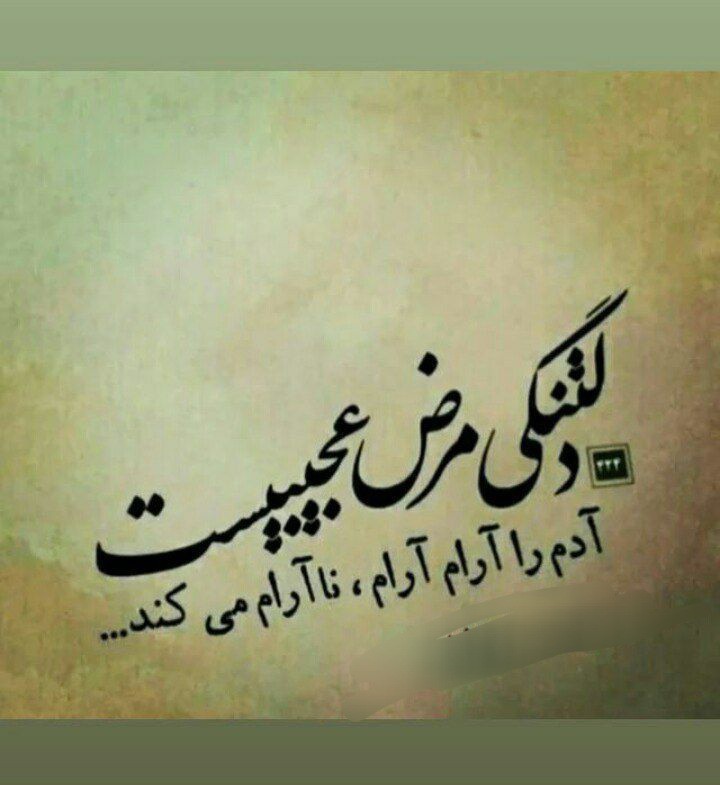 دلتنگی مرض عجیبیست
آدم را آرام آرام ، ناآرام می کند...